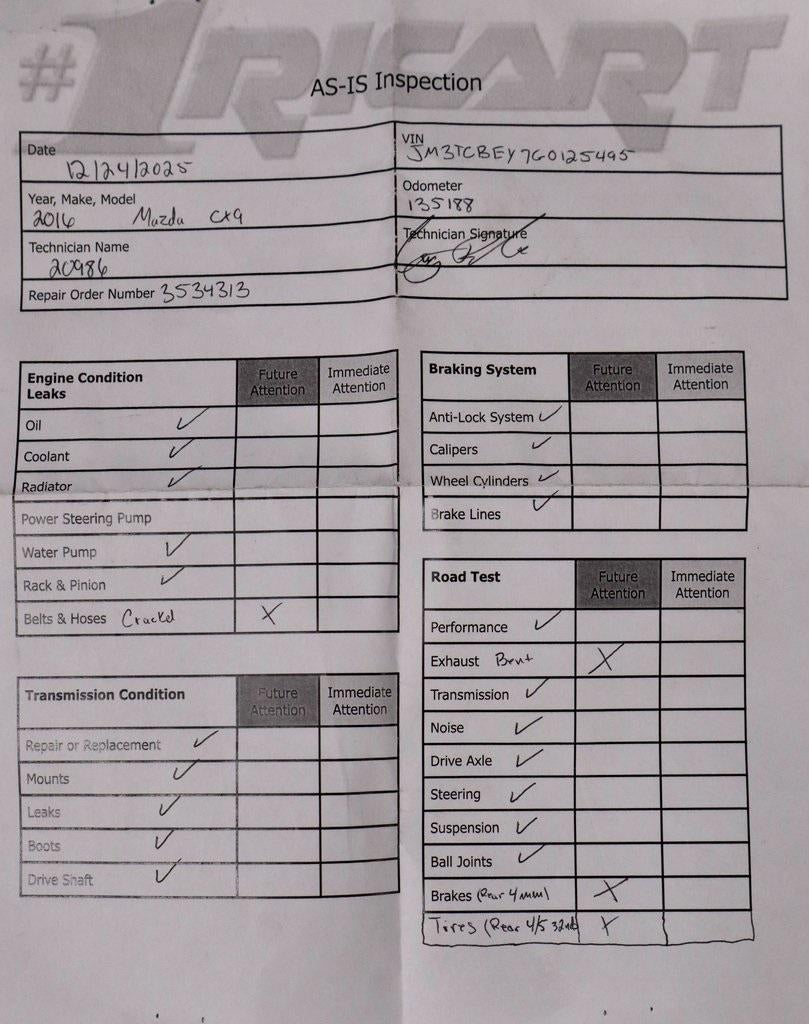 #1 RICART
AS-IS Inspection
Date
12/24/2025
VIN
JM3TCBEY7G0125495
Year, Make, Model
2016 Mazda CX9
Odometer
135188
Technician Name
20986
Technician Signature
Repair Order Number 3534313
Engine Condition
Leaks
Future
Attention
Immediate
Attention
Oil ✓
Coolant ✓
Radiator ✓
Power Steering Pump
Water Pump ✓
Rack & Pinion ✓
Belts & Hoses Cracked X
Transmission Condition
Future
Attention
Immediate
Attention
Repair or Replacement ✓
Mounts ✓
Leaks ✓
Boots ✓
Drive Shaft ✓
Braking System
Future
Attention
Immediate
Attention
Anti-Lock System ✓
Calipers ✓
Wheel Cylinders ✓
Brake Lines ✓
Road Test
Future
Attention
Immediate
Attention
Performance ✓
Exhaust Bent X
Transmission ✓
Noise ✓
Drive Axle ✓
Steering ✓
Suspension ✓
Ball Joints ✓
Brakes (Rear 4mm) X
Tires (Rear 4/5 32nd) X